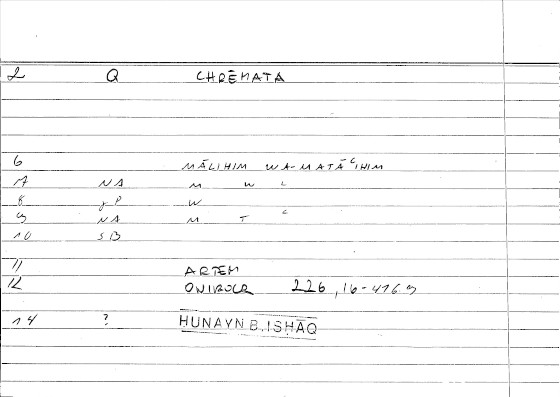 2 Q CHRĒMATA
6 MĀLIHIM WA-MATĀʿIHIM
17 NA M W L
8 gP W
9 NA M T ʿ
10 SB
11 ARTEM
12 ONIROCR 226,16-476.9
14 ? HUNAYN B. ISHĀQ